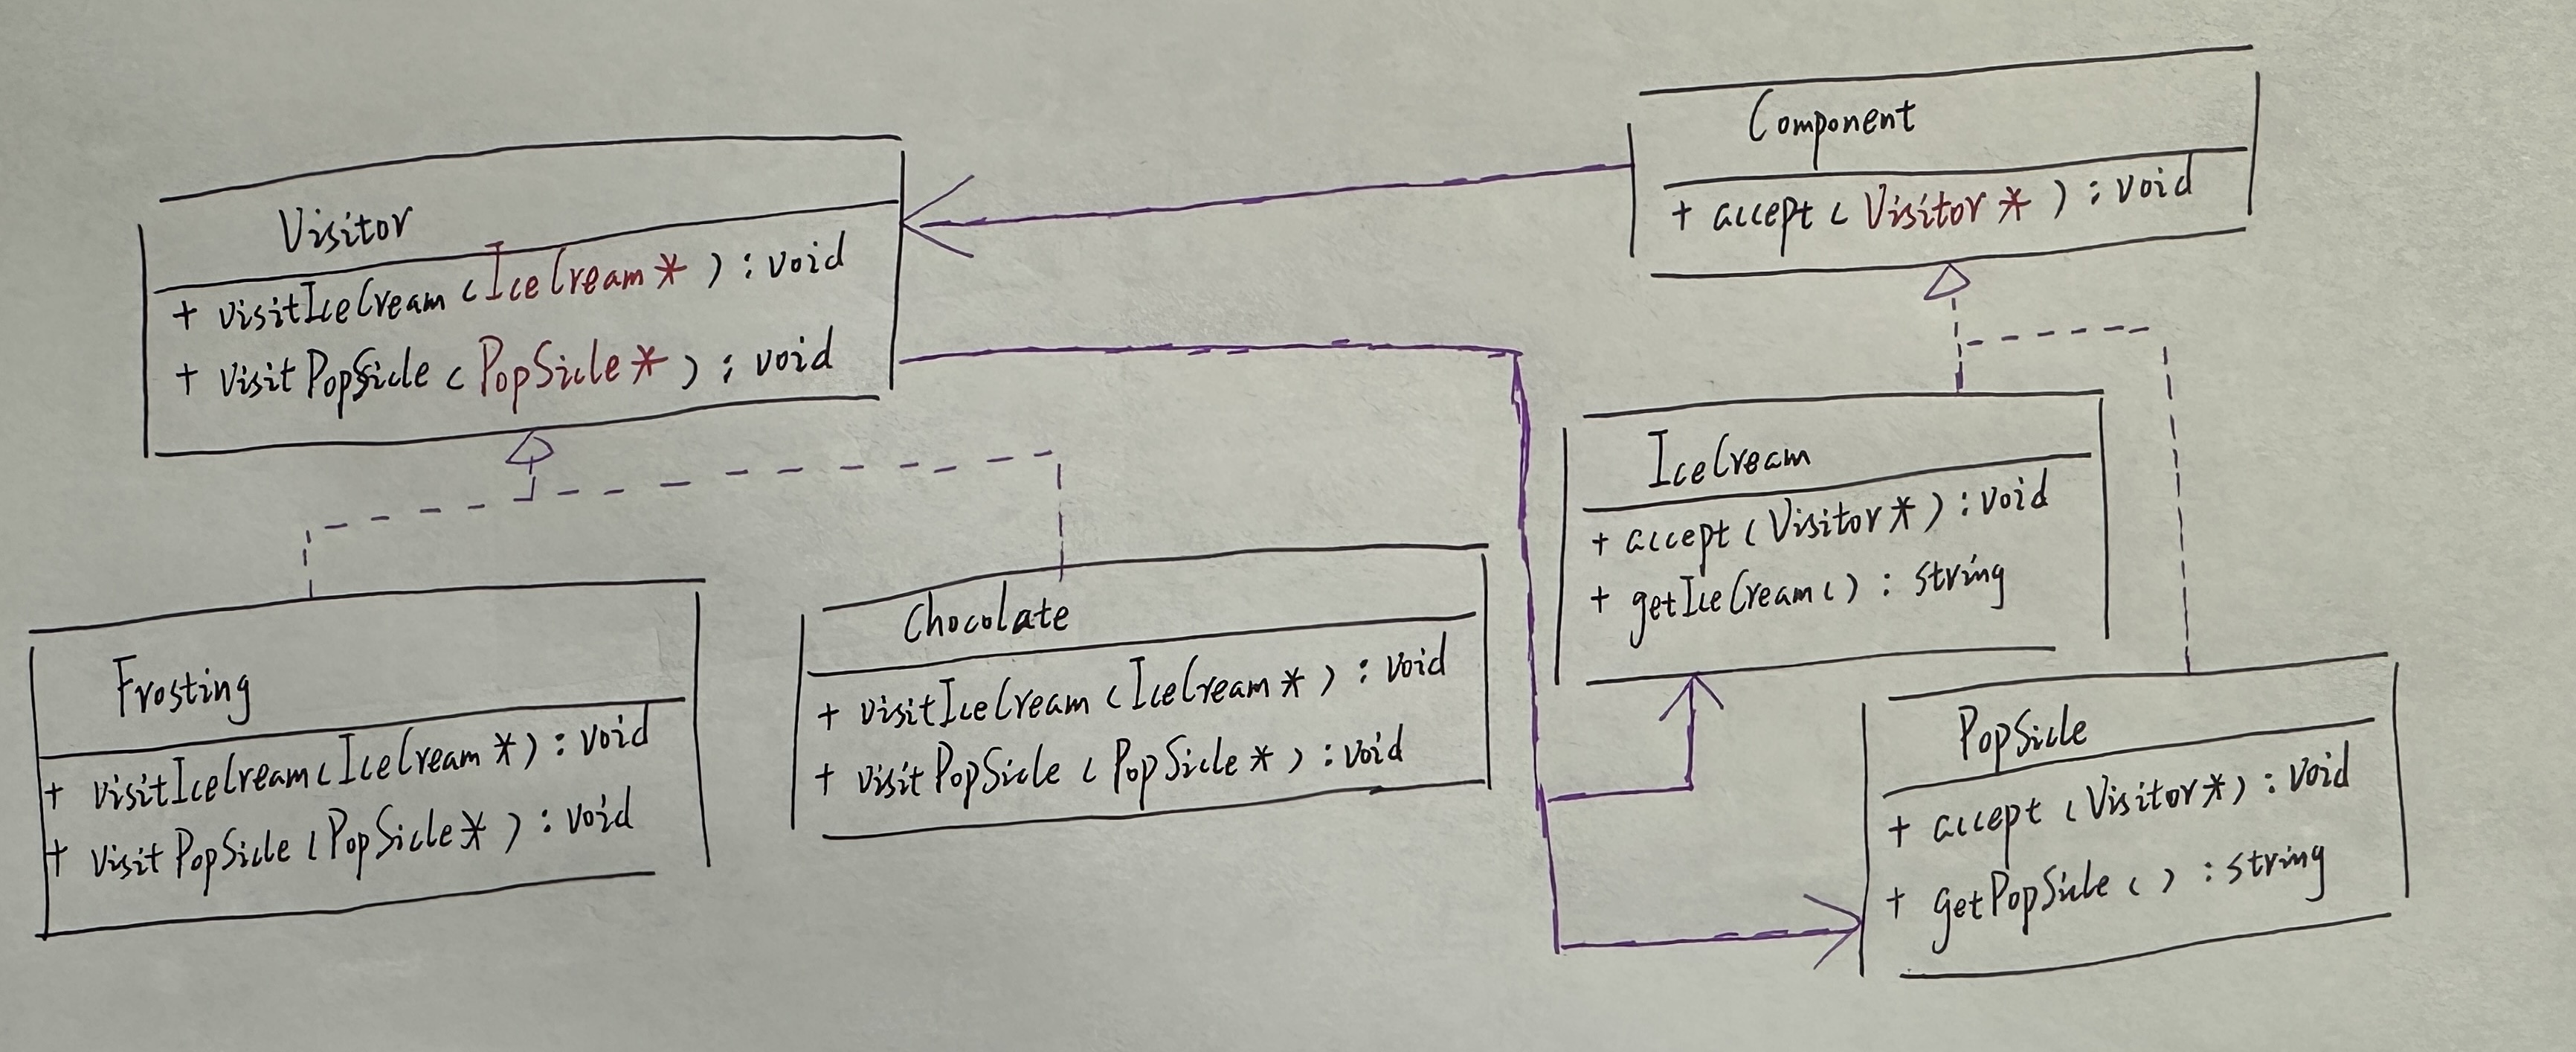 Visitor
+ visitIceCream (IceCream*) : void
+ visitPopSicle (PopSicle*) : void
Component
+ accept (Visitor*) : void
Frosting
+ visitIceCream (IceCream*) : void
+ visitPopSicle (PopSicle*) : void
Chocolate
+ visitIceCream (IceCream*) : void
+ visitPopSicle (PopSicle*) : void
IceCream
+ accept (Visitor*) : void
+ getIceCream () : string
PopSicle
+ accept (Visitor*) : void
+ getPopSicle () : string